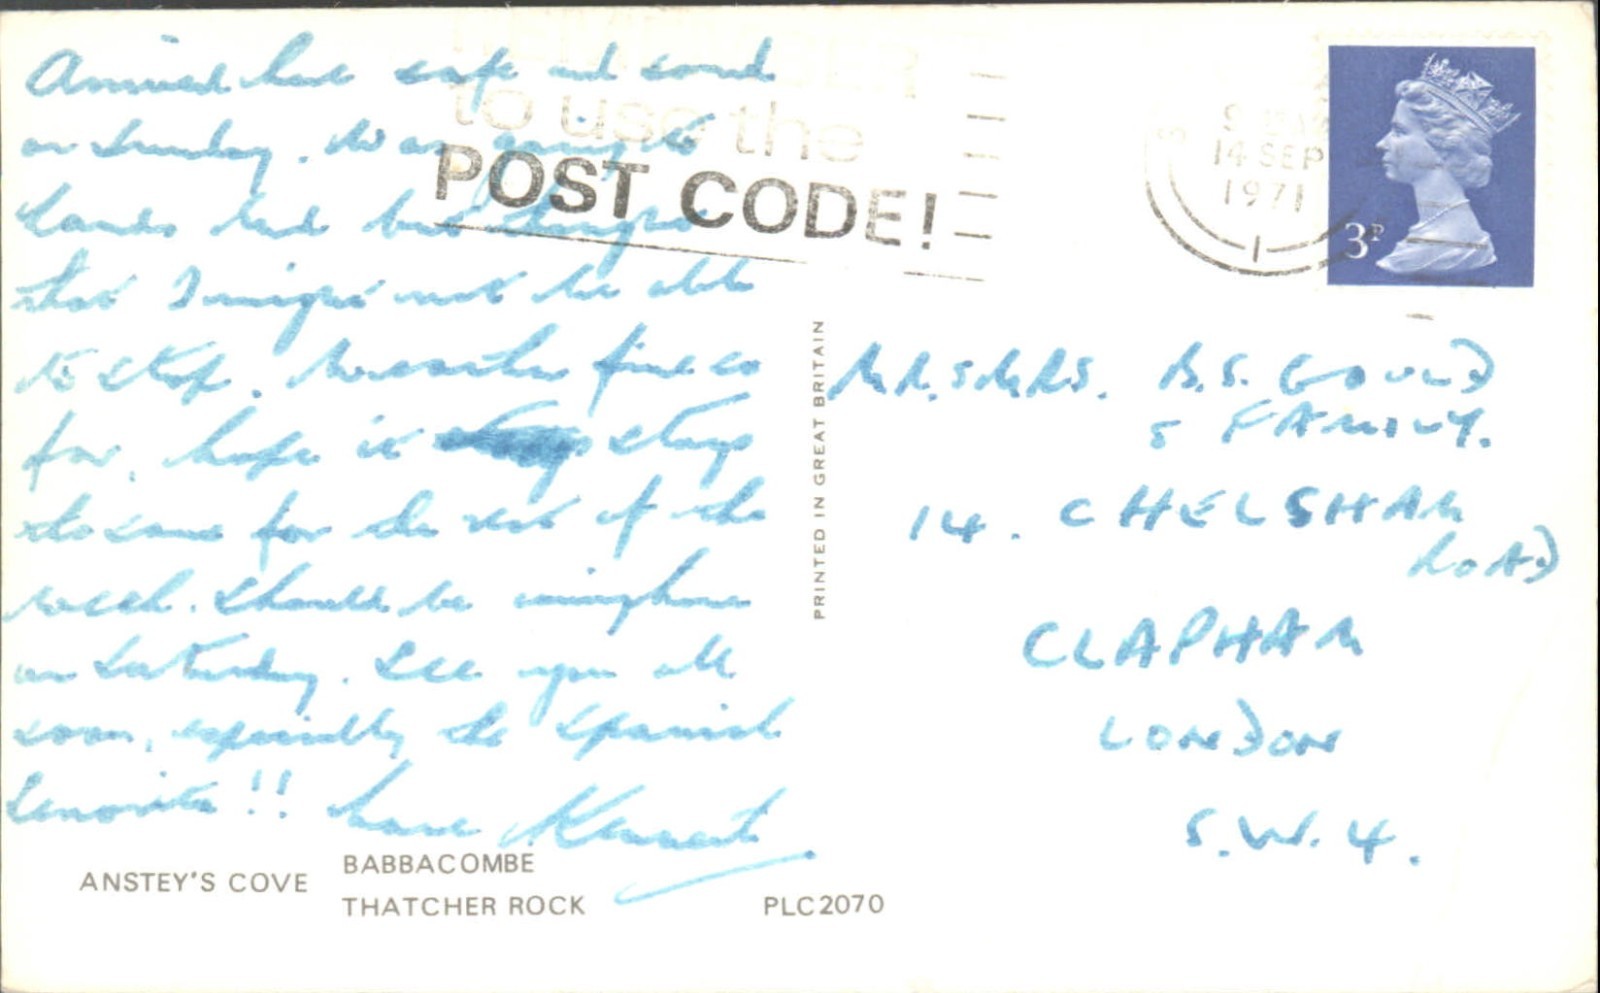 Arrived here safe and sound
on Sunday. Was going to
Lands End but thought
that I might not be able
to stop. Weather fine so
for, hope it stays
the same for the rest of the
week. Should be home
on Saturday. See you all
soon, especially the Spanish
Senorita !! Love Kenneth
ANSTEY'S COVE
BABBACOMBE
THATCHER ROCK
PLC2070
PRINTED IN GREAT BRITAIN
to use the
POST CODE!
14 SEP
1971
3P
MR. & MRS. B.S. GOULD
& FAMILY.
14. CHELSHAM
ROAD
CLAPHAM
LONDON
S.W.4.